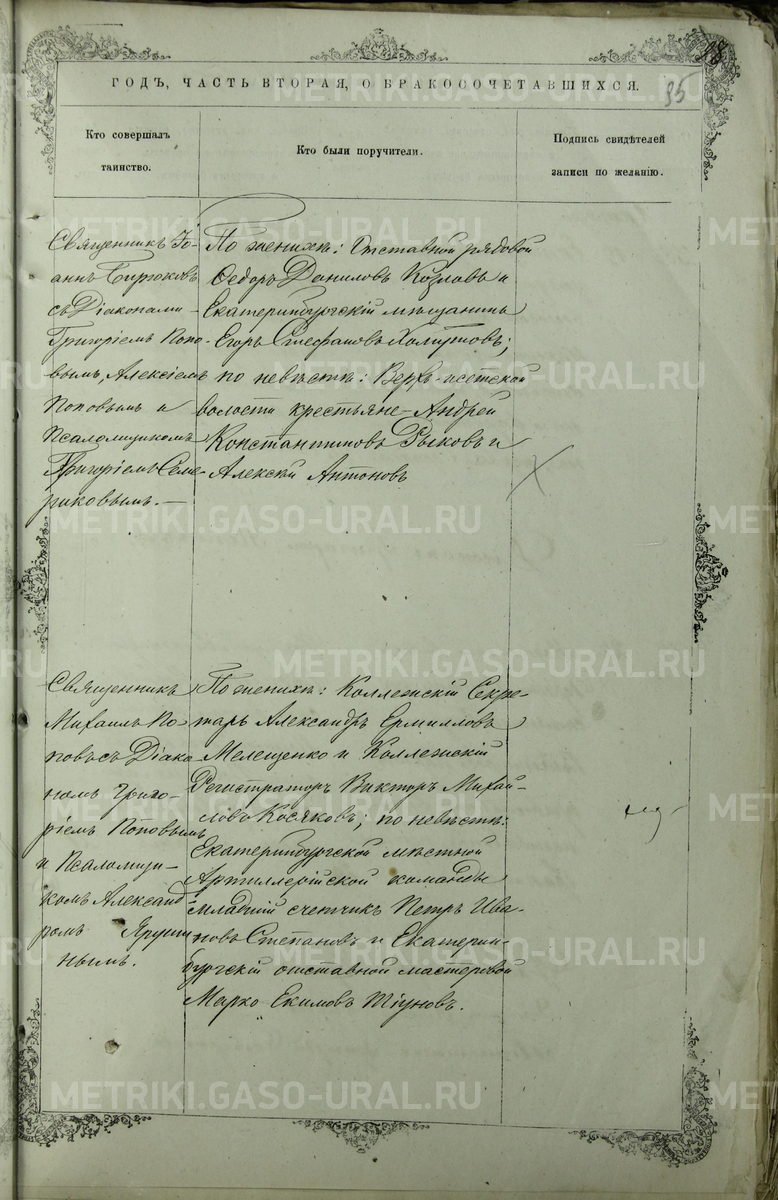 35
ГОДЪ, ЧАСТЬ ВТОРАЯ, О БРАКОСОЧЕТАВШИХСЯ.
Кто совершалъ
таинство.
Кто были поручители.
Подпись свидѣтелей
записи по желанію.
Священникъ Іо-
аннъ Бирюковъ
съ Діаконами
Григоріемъ Попо-
вымъ, Алексіемъ
Поповымъ и
Псаломщикомъ
Григоріемъ Семе-
риковымъ.—
По женихѣ: Отставной рядовой
Ѳедоръ Даниловъ Козловъ и
Екатеринбургскій мѣщанинъ
Егоръ Стефановъ Хомутовъ;
по невѣстѣ: Верхъ-исетской
волости крестьяне Андрей
Константиновъ Рыковъ и
Алексѣй Антоновъ
Священникъ
Михаилъ По-
повъ съ Діако
номъ Григо-
ріемъ Поповымъ
и Псаломщи-
комъ Александ
ромъ Яруши
нымъ.
По женихѣ: Коллежскій Секре-
тарь Александръ Ермиловъ
Мелещенко и Коллежскій
Регистраторъ Викторъ Михай-
ловъ Косяковъ; по невѣстѣ:
Екатеринбургской мѣстной
Артиллерійской команды
младшій счетчикъ Петръ Ива-
новъ Степановъ и Екатерин-
бургскій отставной мастеровой
Марко Екимовъ Тіуновъ.
METRIKI.GASO-URAL.RU